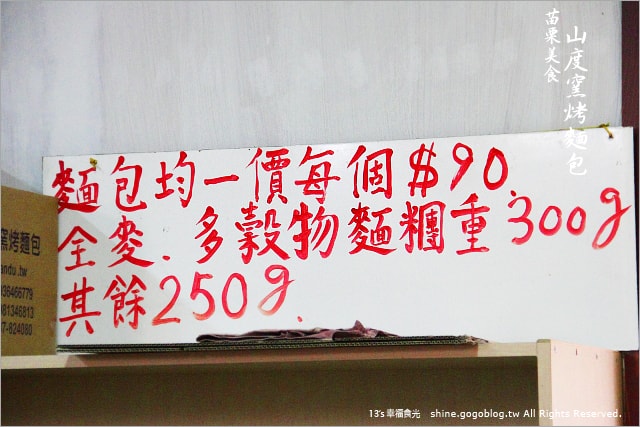 苗栗美食
山度窯烤麵包
麵包均一價每個$90.
全麥.多穀物麵糰重300g
其餘250g.
窯烤麵包
andu.tw
936466779
981346813
7-624080
13's 幸福食光 shine.gogoblog.tw All Rights Reserved.